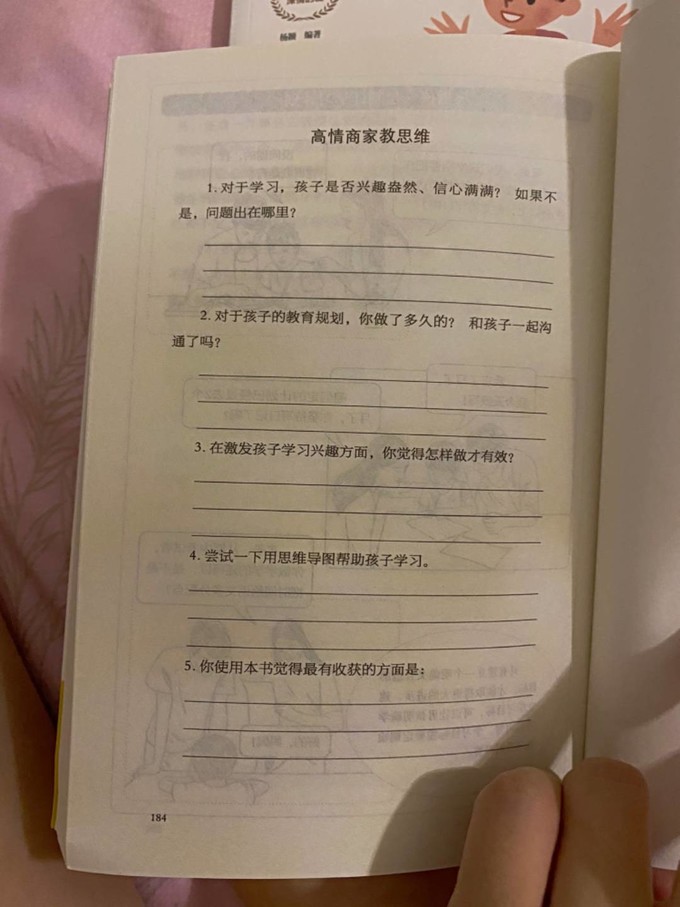 杨颖 编著
高情商家教思维
1. 对于学习，孩子是否兴趣盎然、信心满满？ 如果不
是，问题出在哪里？
2. 对于孩子的教育规划，你做了多久的？ 和孩子一起沟
通了吗？
3. 在激发孩子学习兴趣方面，你觉得怎样做才有效？
4. 尝试一下用思维导图帮助孩子学习。
5. 你使用本书觉得最有收获的方面是：
184